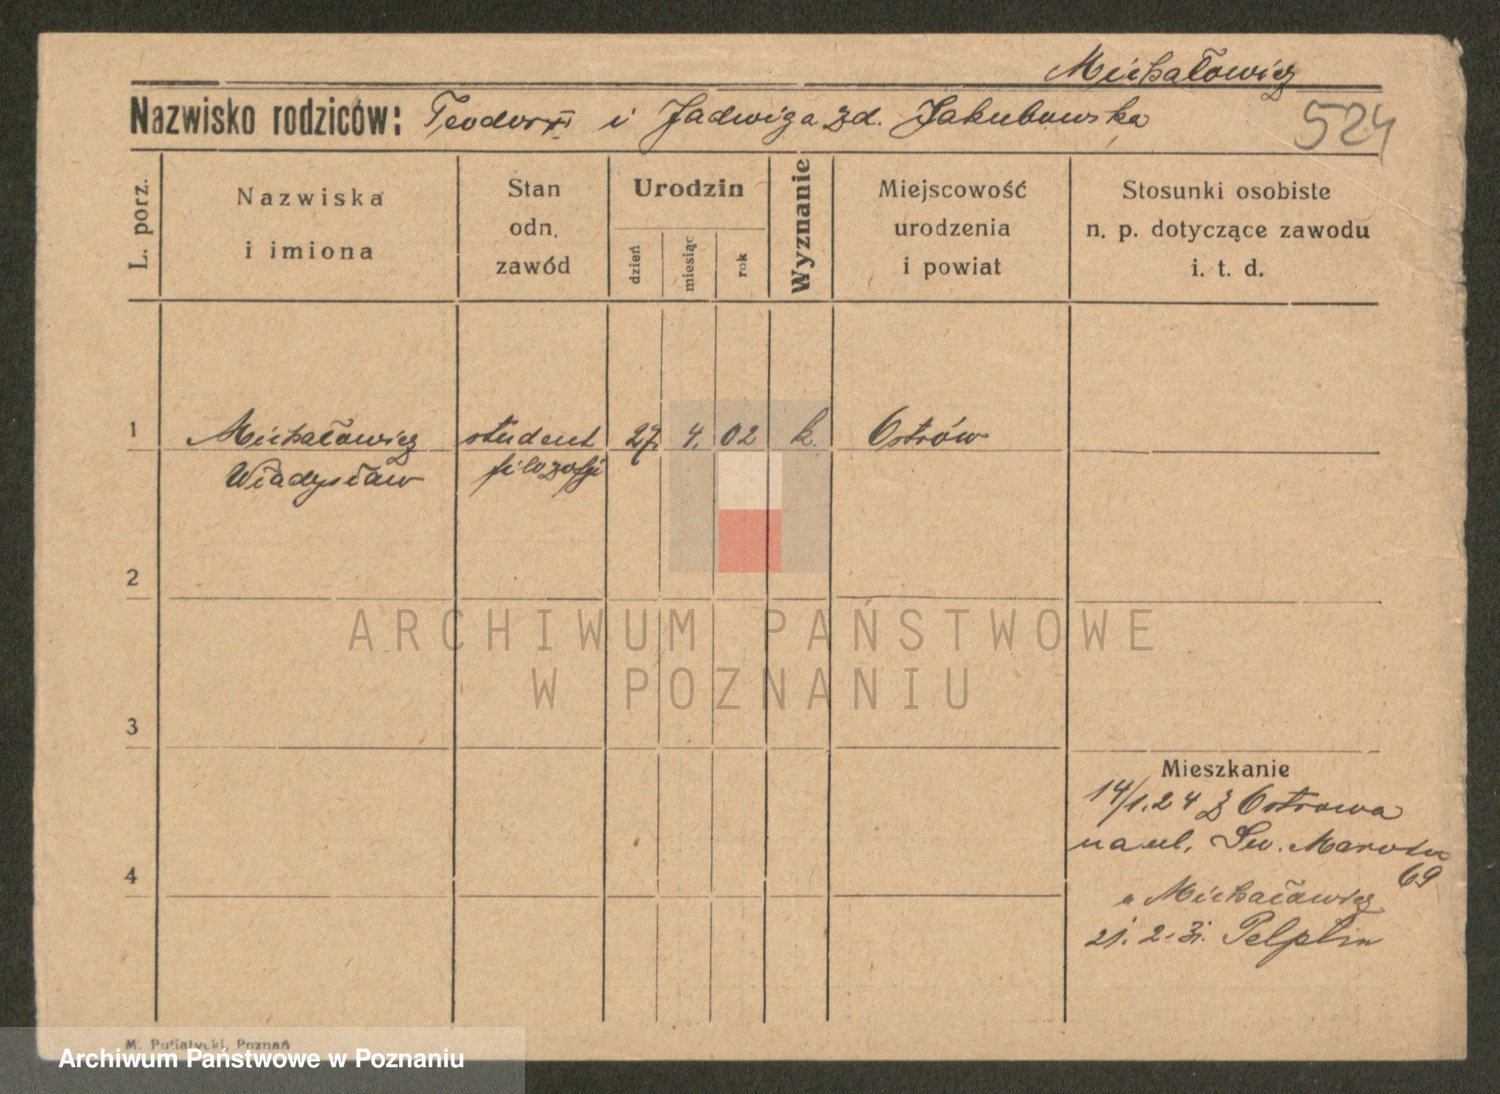 Michałowicz
Nazwisko rodziców: Teodor i Jadwiga zd. Jakubowska
524
L. porz.
Nazwiska
i imiona
Stan
odn.
zawód
Urodzin
dzień
miesiąc
rok
Wyznanie
Miejscowość
urodzenia
i powiat
Stosunki osobiste
n. p. dotyczące zawodu
i. t. d.
1 Michałowicz student 27. 4. 02 k. Ostrów
Władysław filozofji
2
ARCHIWUM PAŃSTWOWE
W POZNANIU
3
Mieszkanie
14/1.24 z Ostrowa
na ul. Św. Marcin
69
4
u Michałowicz
21. 2. Pelplin
M. Putiatycki, Poznań
Archiwum Państwowe w Poznaniu